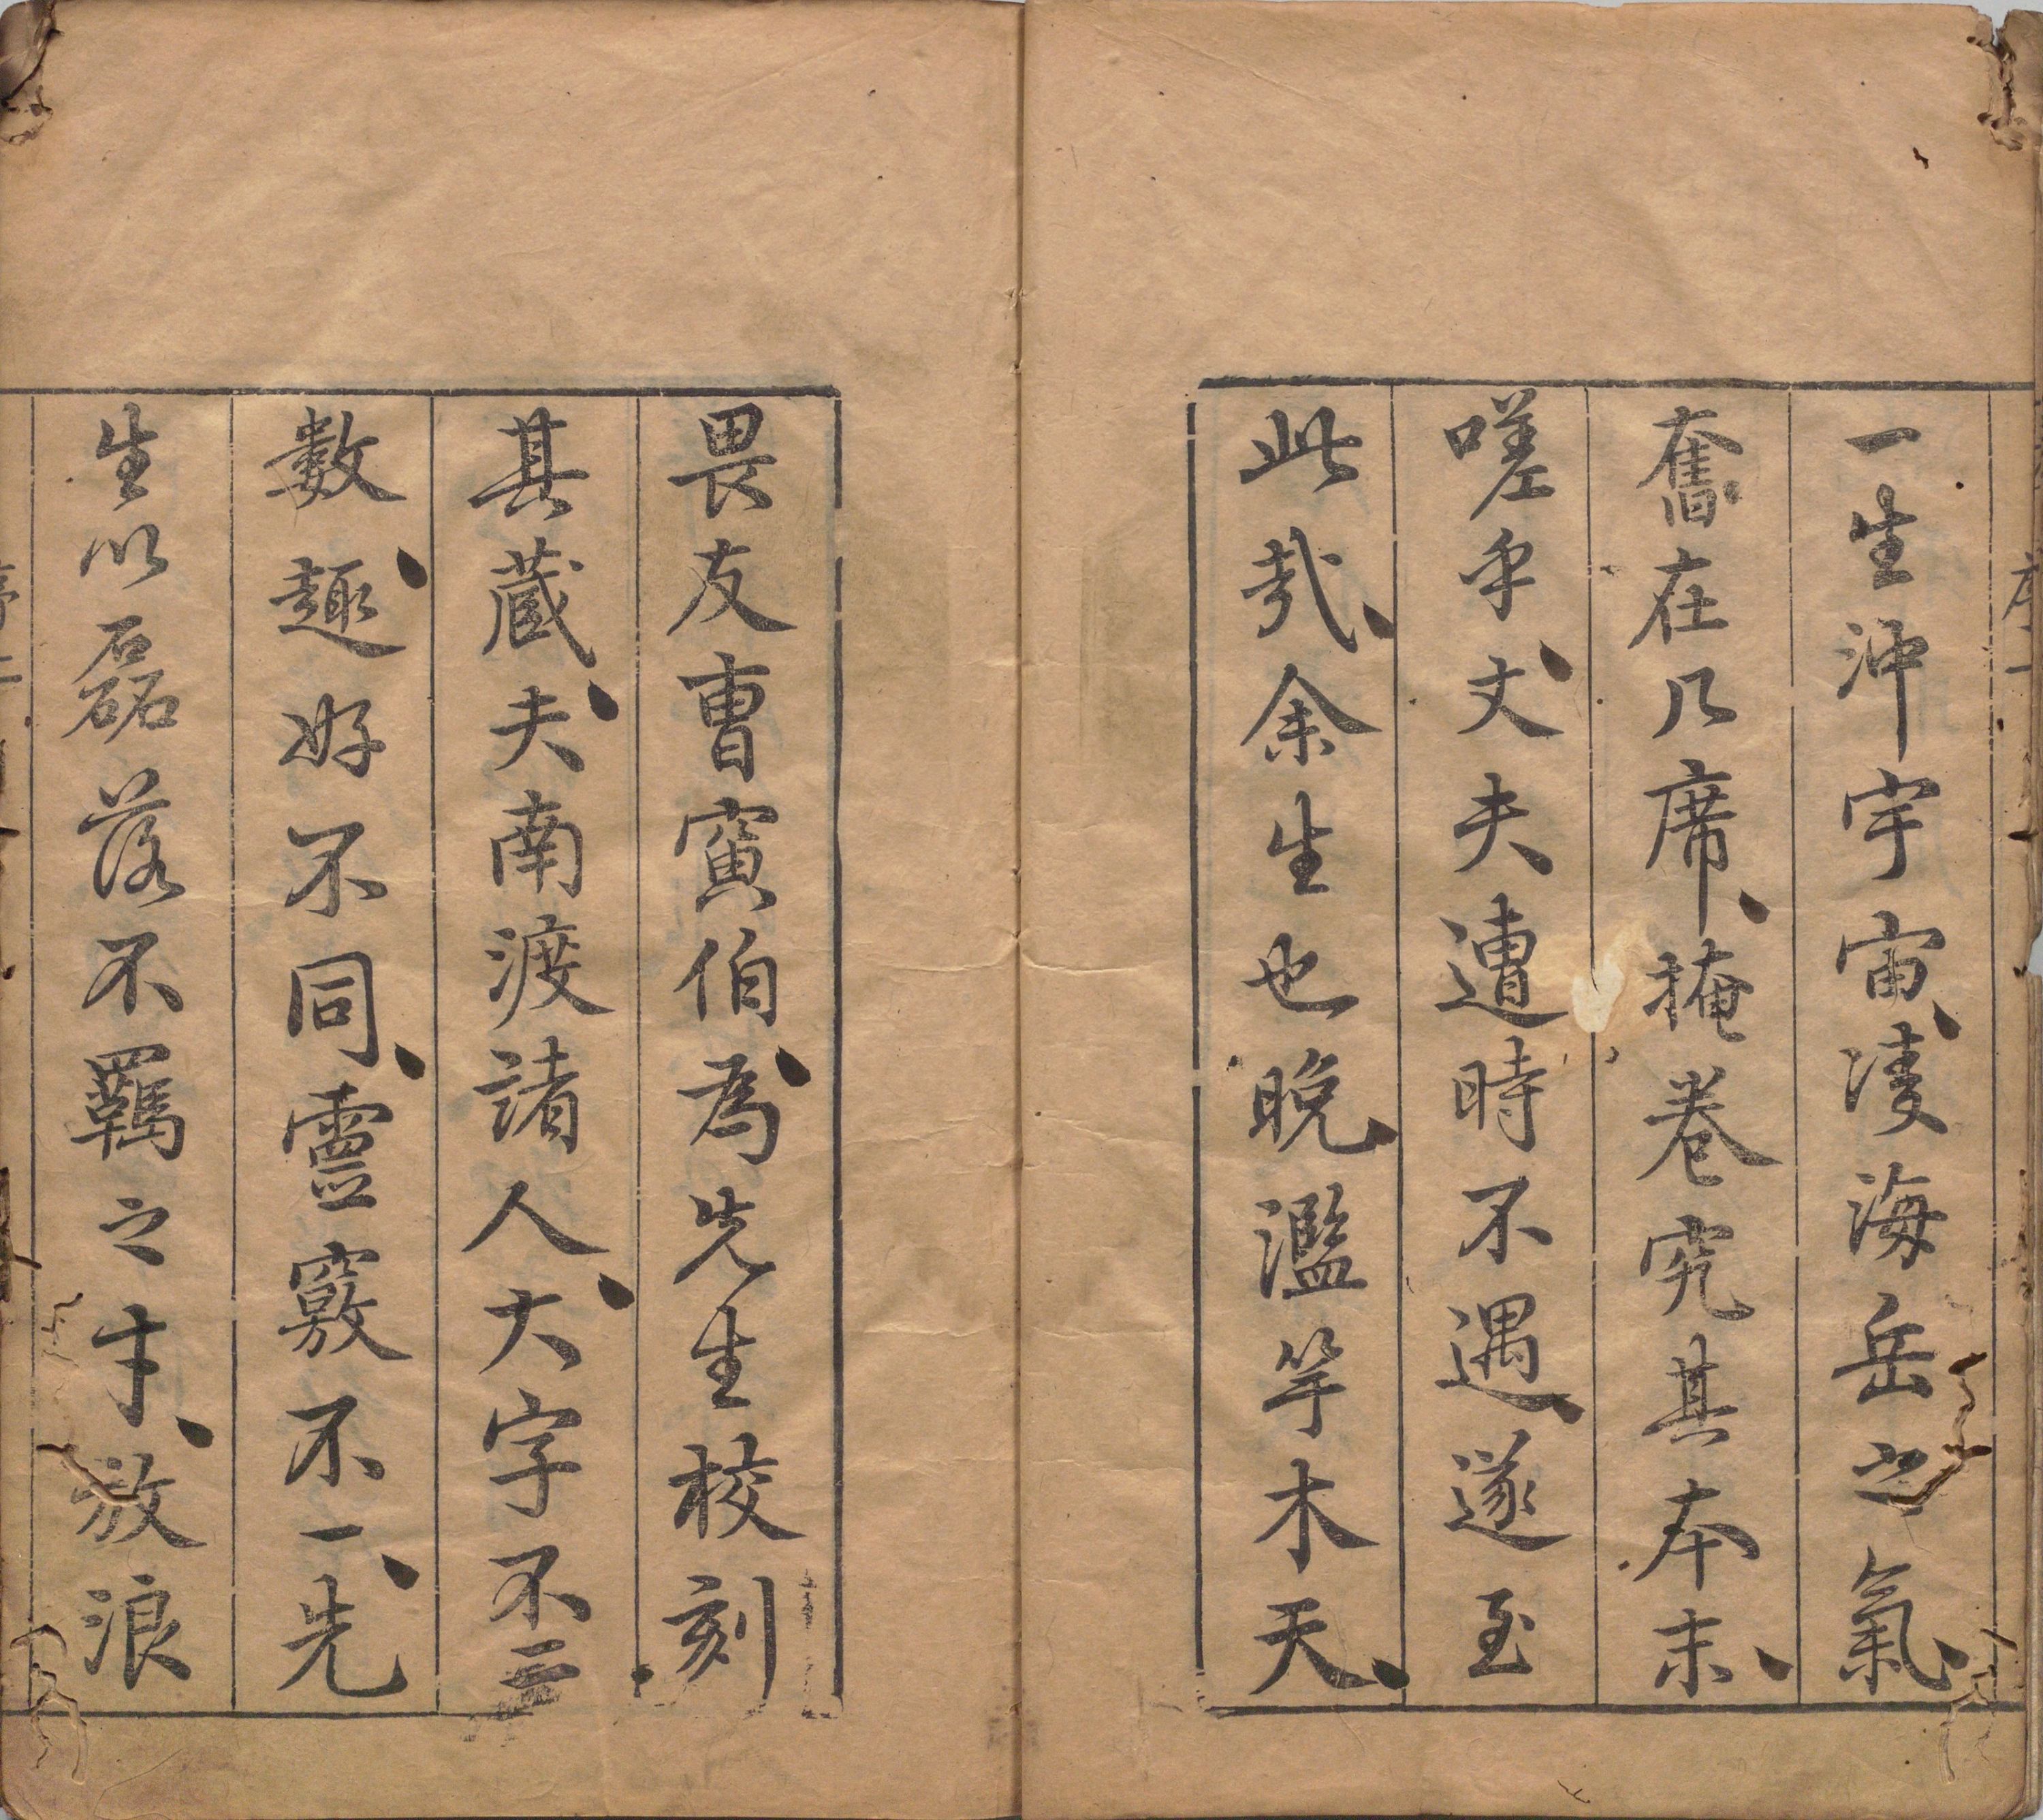 一生沖宇宙、凌海岳之氣、
奮在几席、掩卷究其本末、
嗟乎、丈夫遭時不遇、遂至
此哉、余生也晚、濫竽木天、
畏友曹寅伯、為先生校刻
其蔵、夫南渡諸人、大字不
數、趣好不同、靈竅不一、先
生以磊落不羈之才、放浪